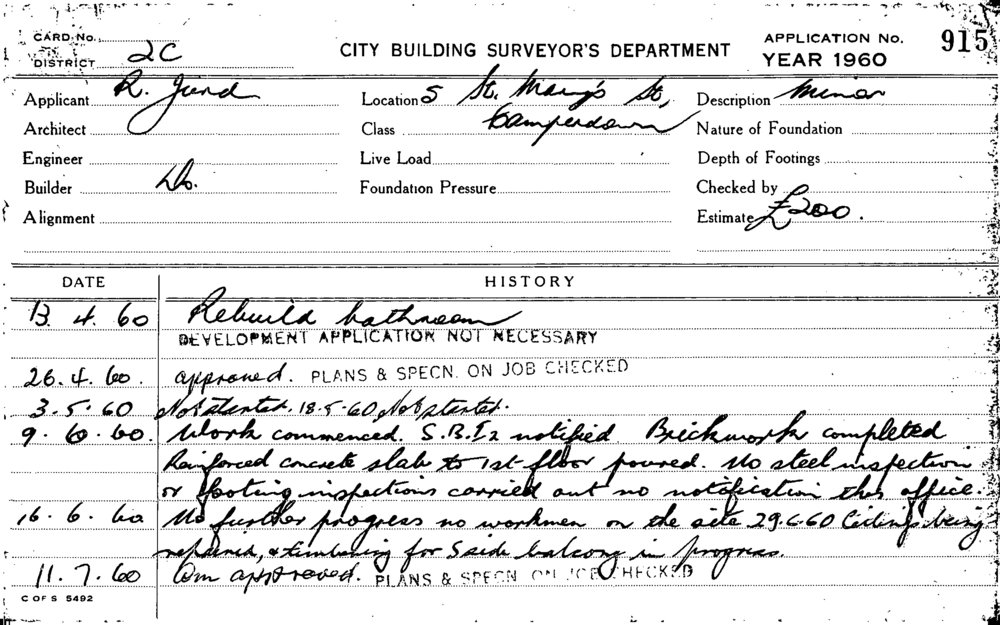 CARD No.
DISTRICT 2C
CITY BUILDING SURVEYOR'S DEPARTMENT
APPLICATION No. 915
YEAR 1960
Applicant R. Jurd
Location 5 St. Mary's St,
Description Minor
Architect
Class Camperdown
Nature of Foundation
Engineer
Live Load
Depth of Footings
Builder Do.
Foundation Pressure
Checked by
Alignment
Estimate £200.
DATE HISTORY
13. 4. 60 Rebuild bathroom
DEVELOPMENT APPLICATION NOT NECESSARY
26. 4. 60. approved. PLANS & SPECN. ON JOB CHECKED
3. 5. 60 Not started. 18.5.60 Not started.
9. 6. 60. Work commenced. S.B.I2 notified. Brickwork completed
Reinforced concrete slab to 1st floor poured. No steel inspection
or footing inspections carried out no notification this office.
16. 6. 60 No further progress no workmen on the site 29.6.60 Ceilings being
repaired, & timbering for S side balcony in progress.
11. 7. 60 Am approved. PLANS & SPECN ON JOB CHECKED
C OF S 5492